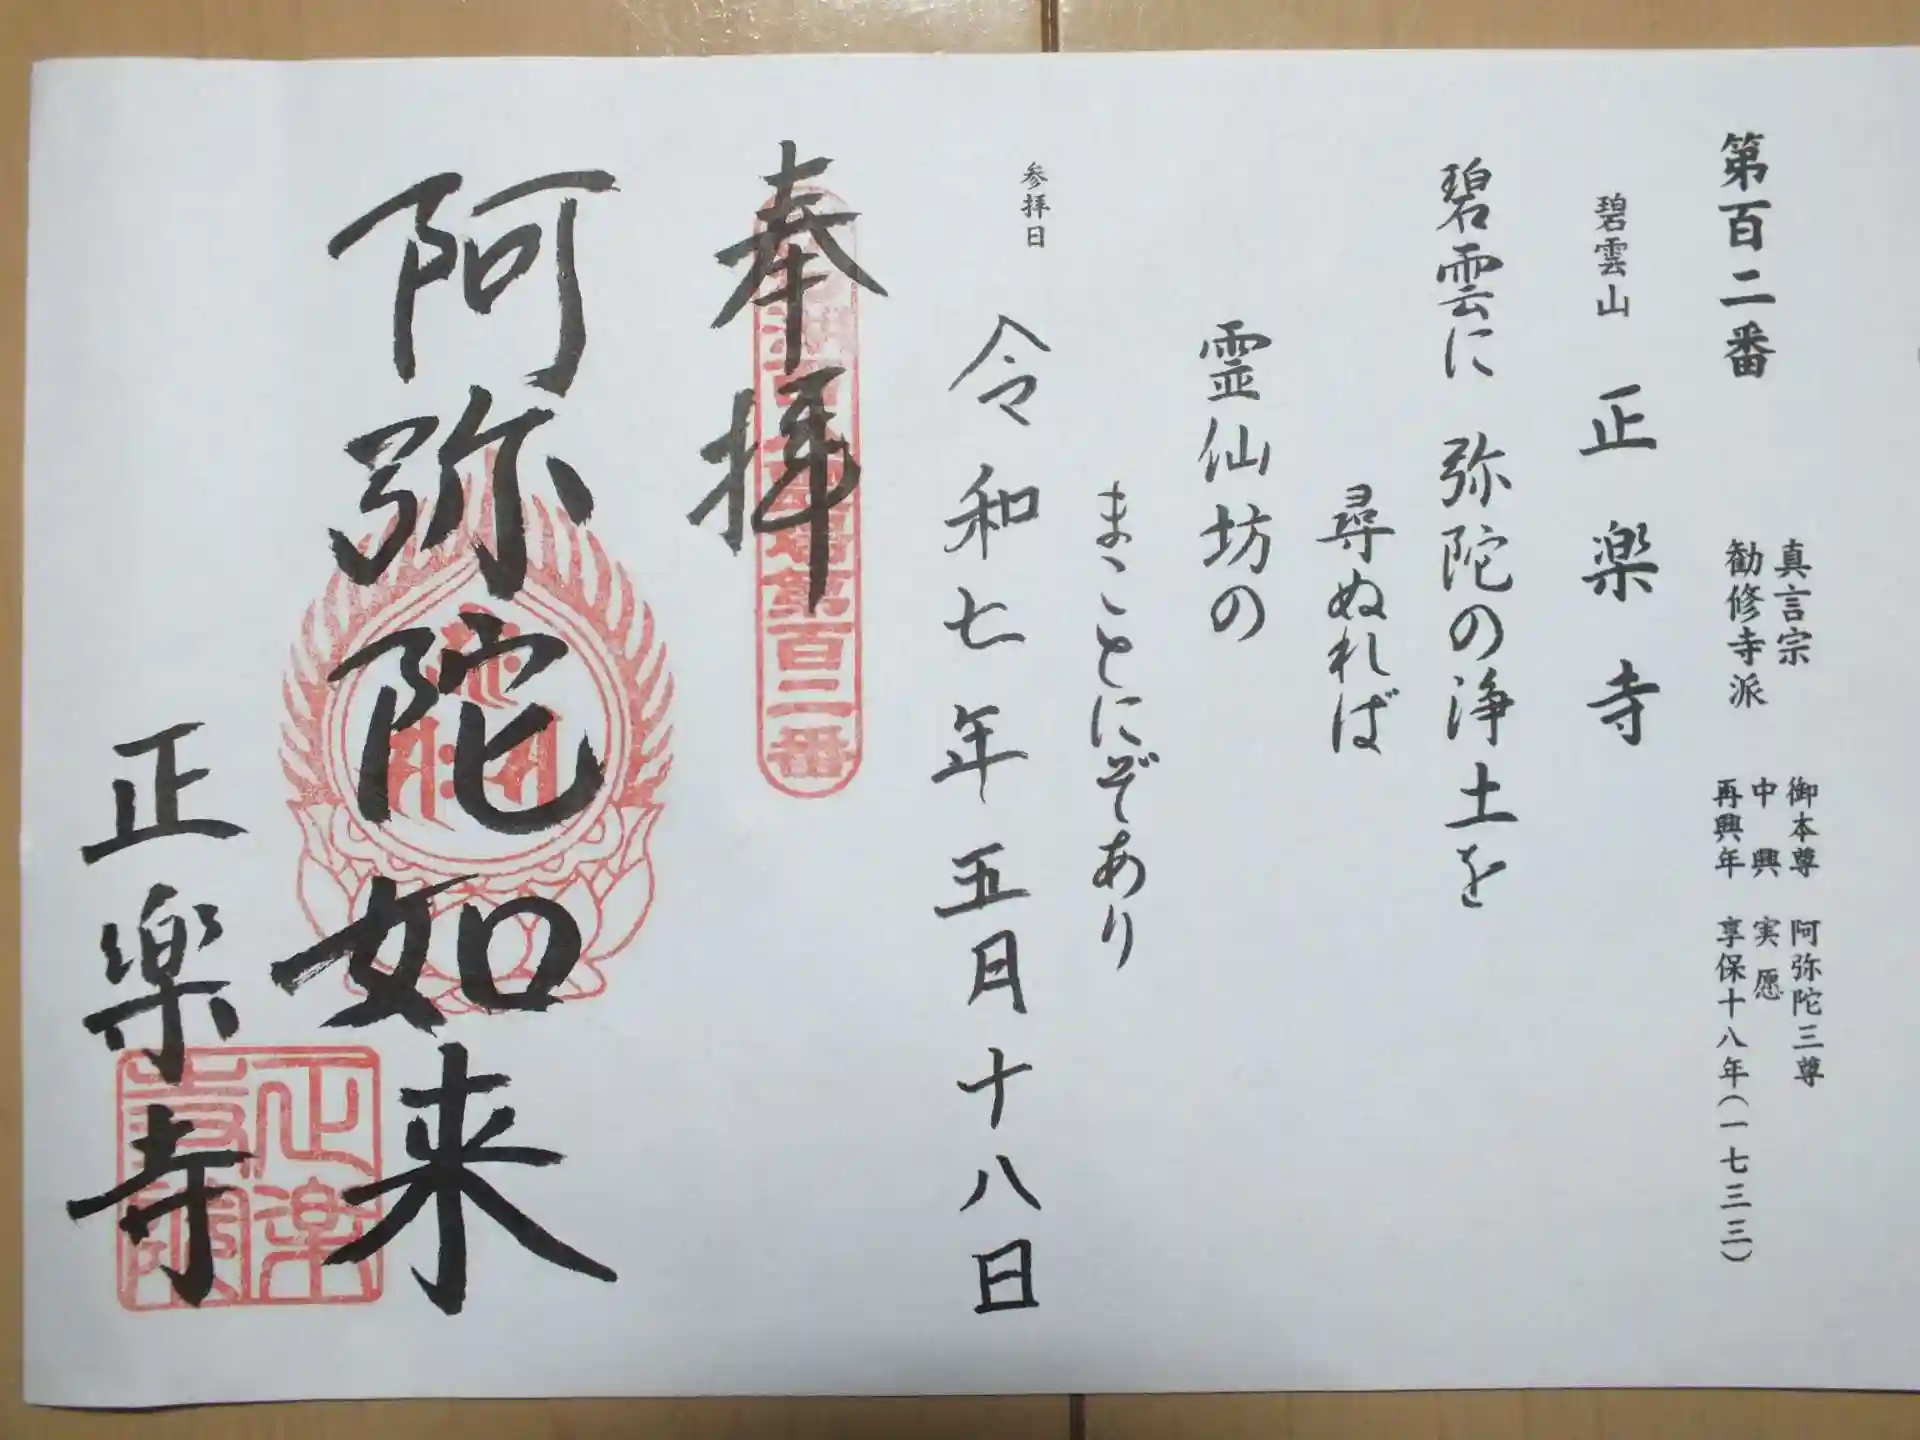 第百二番
真言宗
勧修寺派
御本尊 阿弥陀三尊
中興 実愿
再興年 享保十八年(一七三三)
碧雲山 正楽寺
碧雲に 弥陀の浄土を
尋ぬれば
霊仙坊の
まことにぞあり
参拝日 令和七年五月十八日
奉拝
第百二番
阿弥陀如来
正楽寺
正楽